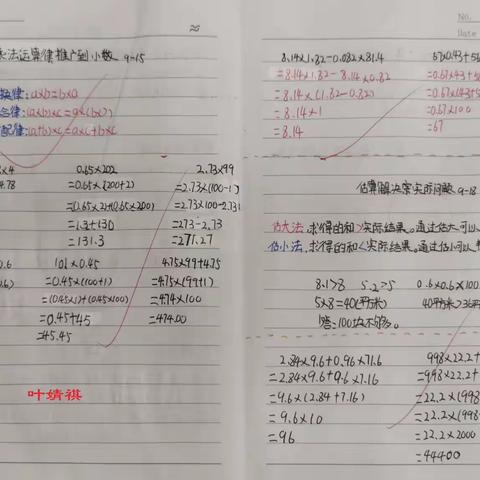 乘法运算律推广到小数 9-15
换律:a×b=b×a
合律:(a×b)×c=a×(b×c)
配律:(a+b)×c=a×c+b×c
×4
4.78
0.65×202
=0.65×(200+2)
=(0.65×2)+(0.65×200)
=1.3+130
=131.3
2.73×99
=2.73×(100-1)
=2.73×100-2.73×1
=273-2.73
=271.27
0.6
101×0.45
=0.45×(100+1)
=(0.45×1)+(0.45×100)
=0.45+45
=45.45
4.75×99+4.75
=4.75×(99+1)
=4.74×100
=474.00
叶婧祺
No.
Date
8.14×1.82-0.082×81.4
=8.14×1.82-8.14×0.82
=8.14×(1.82-0.82)
=8.14×1
=8.14
67×0.43+56
=0.67×43+56
=0.67×100
=67
估算解决实际问题 9-18
估大法,求得的和>实际结果。通过估大可以
估小法,求得的和<实际结果。通过估小可以
8.1>8 5.2>5
5×8=40(平方米)
答:100块不够。
0.6×0.6×100
40平方米>36
2.84×9.6+0.96×71.6
=2.84×9.6+9.6×7.16
=9.6×(2.84+7.16)
=9.6×10
=96
998×22.2+
=998×22.2+
=22.2×(998
=22.2×(998
=22.2×2000
=44400